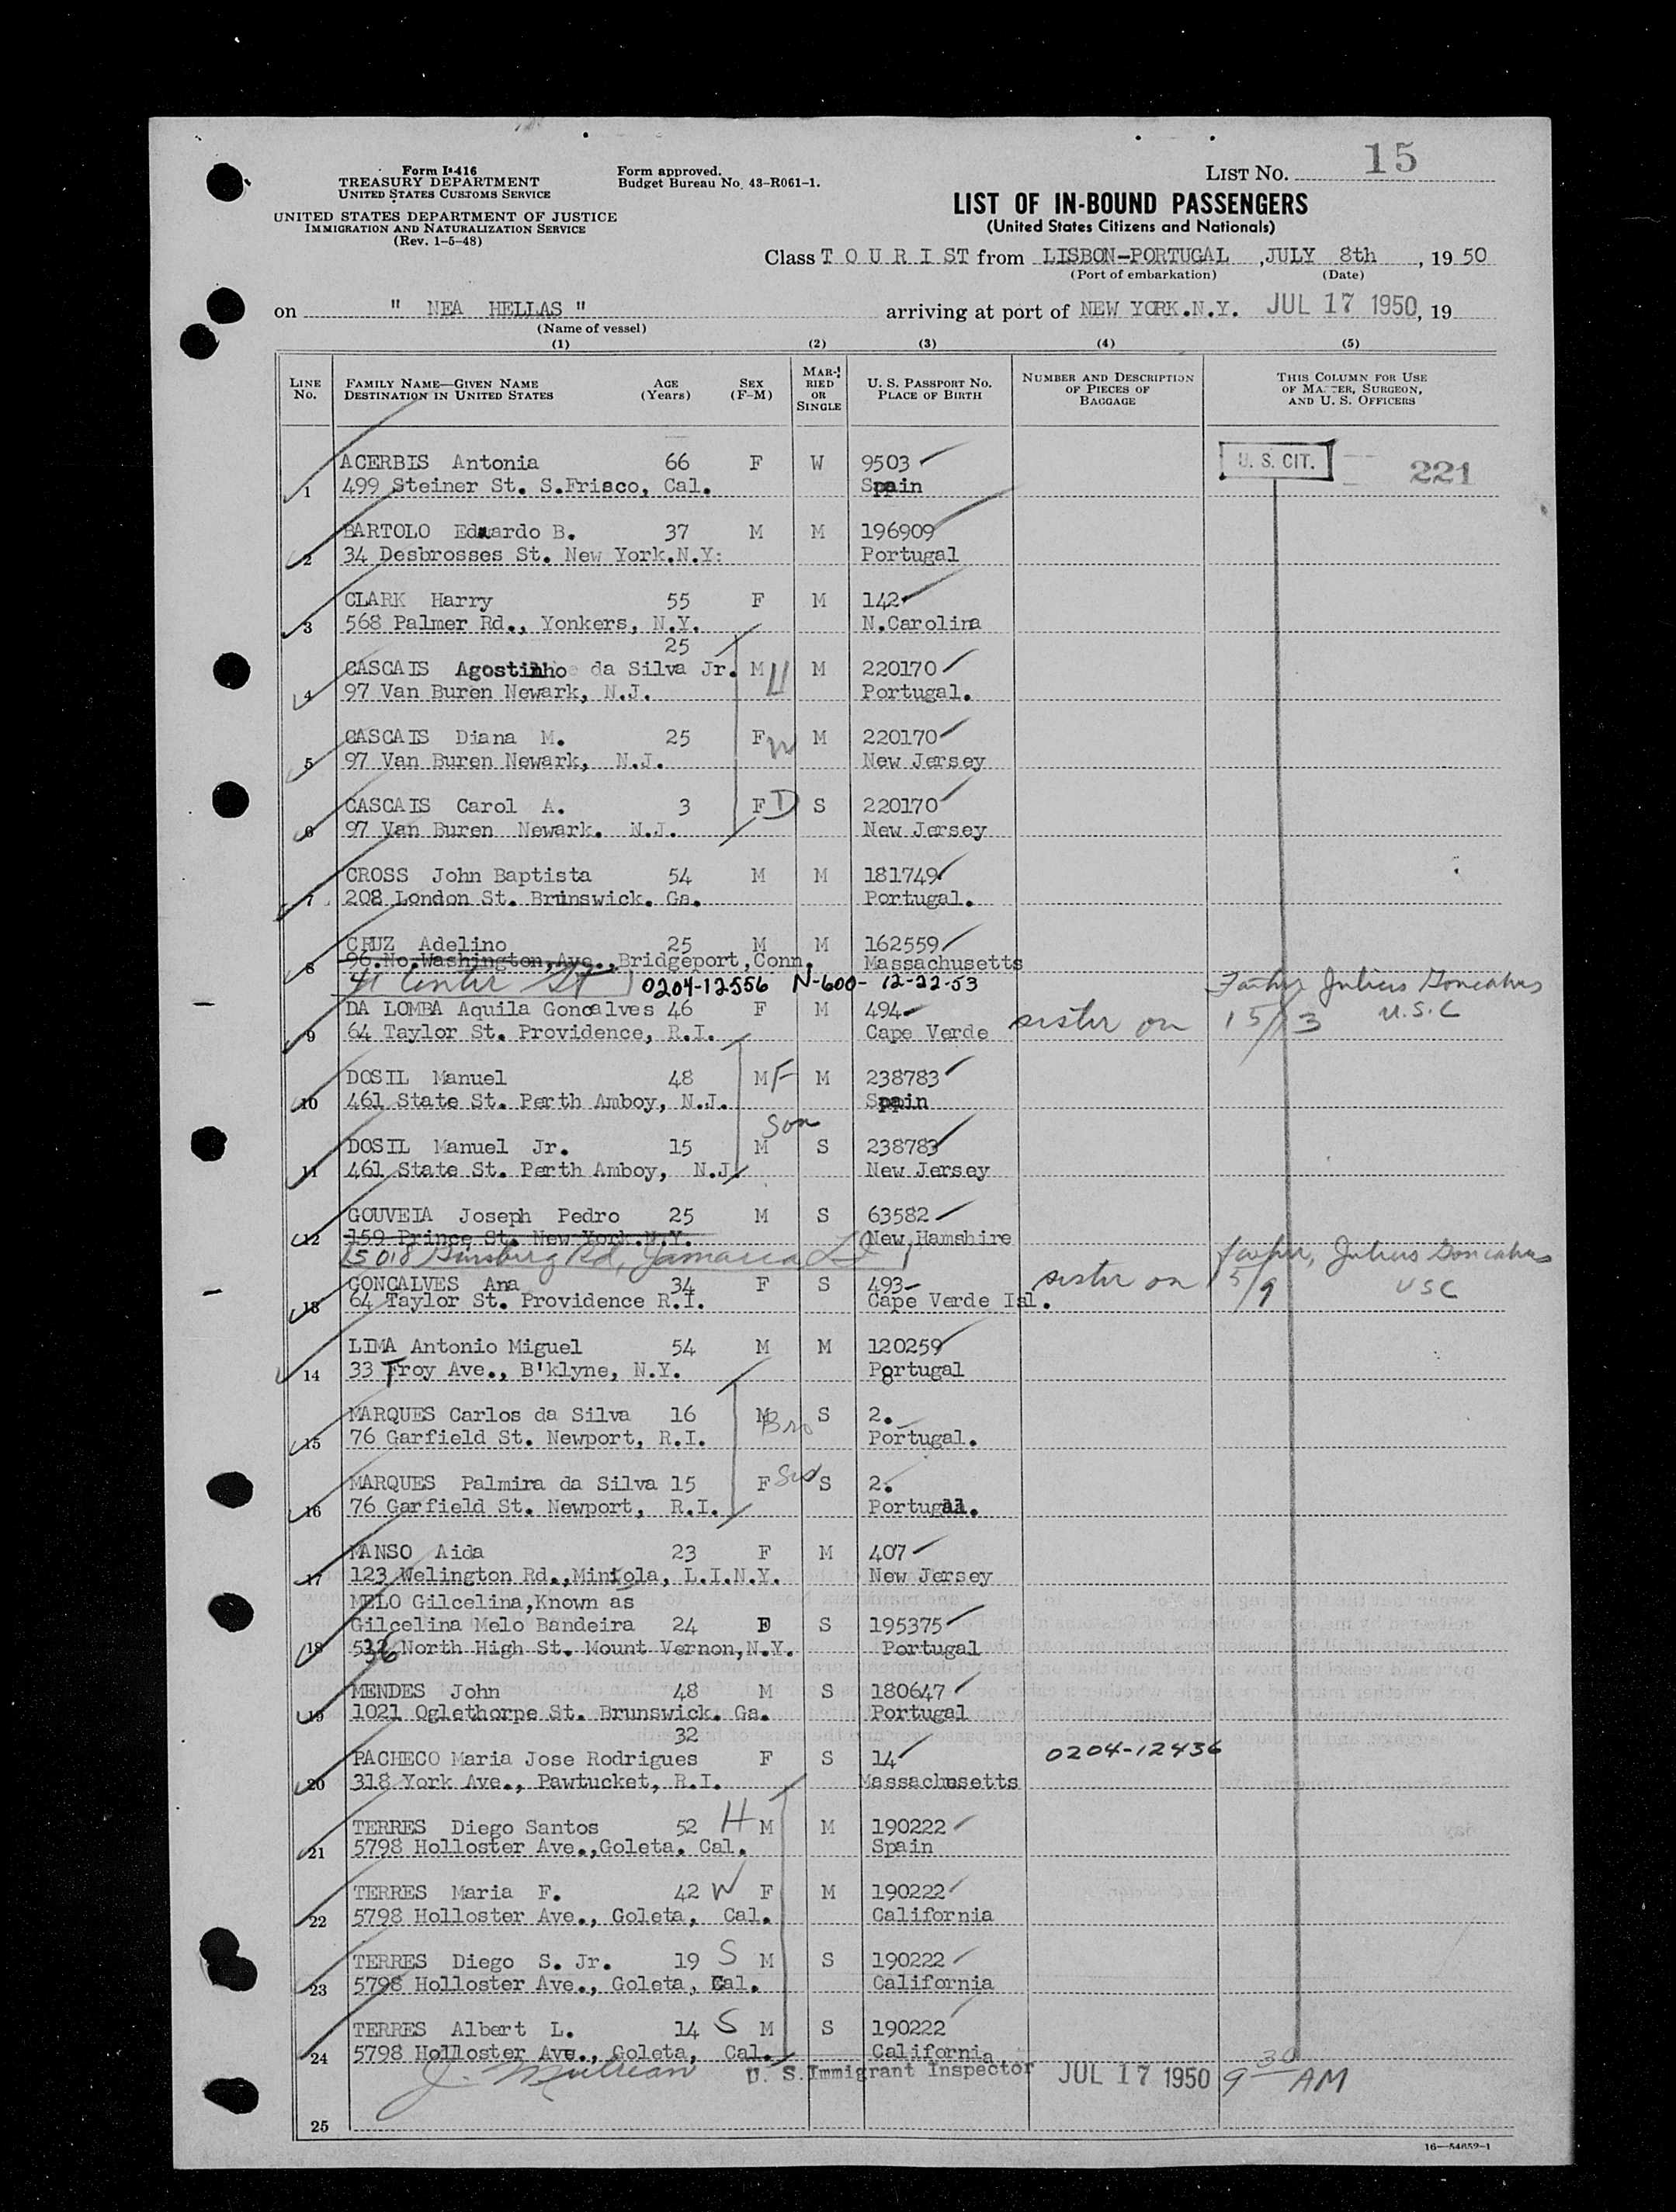 Form I-416
TREASURY DEPARTMENT
UNITED STATES CUSTOMS SERVICE
UNITED STATES DEPARTMENT OF JUSTICE
IMMIGRATION AND NATURALIZATION SERVICE
(Rev. 1-5-48)
Form approved.
Budget Bureau No. 43-R061-1.
LIST No. 15
LIST OF IN-BOUND PASSENGERS
(United States Citizens and Nationals)
Class T O U R I S T from LISBON-PORTUGAL , JULY 8th , 19 50
(Port of embarkation) (Date)
on " NEA HELLAS " arriving at port of NEW YORK.N.Y. JUL 17 1950, 19
(Name of vessel)
(1) (2) (3) (4) (5)
LINE No. FAMILY NAME—GIVEN NAME DESTINATION IN UNITED STATES AGE (Years) SEX (F-M) MARRIED OR SINGLE U. S. PASSPORT NO. PLACE OF BIRTH NUMBER AND DESCRIPTION OF PIECES OF BAGGAGE THIS COLUMN FOR USE OF MASTER, SURGEON, AND U. S. OFFICERS
ACERBIS Antonia 66 F W 9503 U. S. CIT. 221
1 499 Steiner St. S.Frisco, Cal. Spain
BARTOLO Eduardo B. 37 M M 196909
2 34 Desbrosses St. New York.N.Y:
Portugal
CLARK Harry 55 F M 142
3 568 Palmer Rd., Yonkers, N.Y. N.Carolina
25
CASCAIS Agostinho da Silva Jr. M H M 220170
4 97 Van Buren Newark, N.J. Portugal.
CASCAIS Diana M. 25 F W M 220170
5 97 Van Buren Newark, N.J. New Jersey
CASCAIS Carol A. 3 F D S 220170
6 97 Van Buren Newark. N.J. New Jersey
CROSS John Baptista 54 M M 181749
7 208 London St. Brunswick. Ga. Portugal.
CRUZ Adelino 25 M M 162559
8 96.No.Washington,Ave.,Bridgeport,Conn. Massachusetts
41 Center St 0204-12556 N-600- 12-22-53 Father Julius Goncalves
DA LOMBA Aquila Goncalves 46 F M 494 sister on 15/13 U.S.C
9 64 Taylor St. Providence, R.I. Cape Verde
DOSIL Manuel 48 M F M 238783
10 461 State St. Perth Amboy, N.J. Spain
Son
DOSIL Manuel Jr. 15 M S 238783
11 461 State St. Perth Amboy, N.J. New Jersey
GOUVEIA Joseph Pedro 25 M S 63582
12 159 Prince St. New York.N.Y. New Hamshire
15018 Ginsburg Rd, Jamaica LI father, Julius Goncalves
GONCALVES Ana 34 F S 493 sister on 15/9 USC
13 64 Taylor St. Providence R.I. Cape Verde Isl.
LIMA Antonio Miguel 54 M M 120259
14 33 Troy Ave., B'klyne, N.Y. Portugal
8
MARQUES Carlos da Silva 16 M Bro S 2.
15 76 Garfield St. Newport, R.I. Portugal.
MARQUES Palmira da Silva 15 F Sis S 2.
16 76 Garfield St. Newport, R.I. Portugal.
MANSO Aida 23 F M 407
17 123 Welington Rd.,Miniola, L.I.N.Y. New Jersey
MELO Gilcelina,Known as
Gilcelina Melo Bandeira 24 F S 195375
18 536 North High St. Mount Vernon,N.Y. Portugal
MENDES John 48 M S 180647
19 1021 Oglethorpe St. Brunswick. Ga. Portugal
32
PACHECO Maria Jose Rodrigues F S 14 0204-12436
20 318 York Ave., Pawtucket, R.I. Massachusetts
TERRES Diego Santos 52 H M M 190222
21 5798 Holloster Ave.,Goleta. Cal. Spain
TERRES Maria F. 42 W F M 190222
22 5798 Holloster Ave., Goleta, Cal. California
TERRES Diego S. Jr. 19 S M S 190222
23 5798 Holloster Ave., Goleta, Cal. California
TERRES Albert L. 14 S M S 190222
24 5798 Holloster Ave., Goleta, Cal. California
U. S. Immigrant Inspector JUL 17 1950 9 30 AM
25
16—54652-1